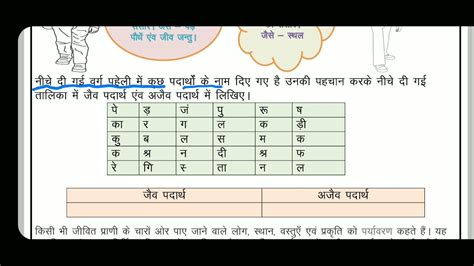 संसार। जैसे – पेड़
पौधें एंव जीव जन्तु।
जैसे – स्थल
नीचे दी गई वर्ग पहेली में कछ पदार्थो के नाम दिए गए है उनकी पहचान करके नीचे दी गई
तालिका में जैव पदार्थ एंव अजैव पदार्थ में लिखिए।
पे ड़ जं पु रू ष
का र ग ल क ड़ी
कु ब ल स म क
क श्र न दी श्र फ
रे गि स् ता न ल
जैव पदार्थ अजैव पदार्थ
किसी भी जीवित प्राणी के चारों ओर पाए जाने वाले लोग, स्थान, वस्तुएँ एवं प्रकृति को पर्यावरण कहते हैं। यह